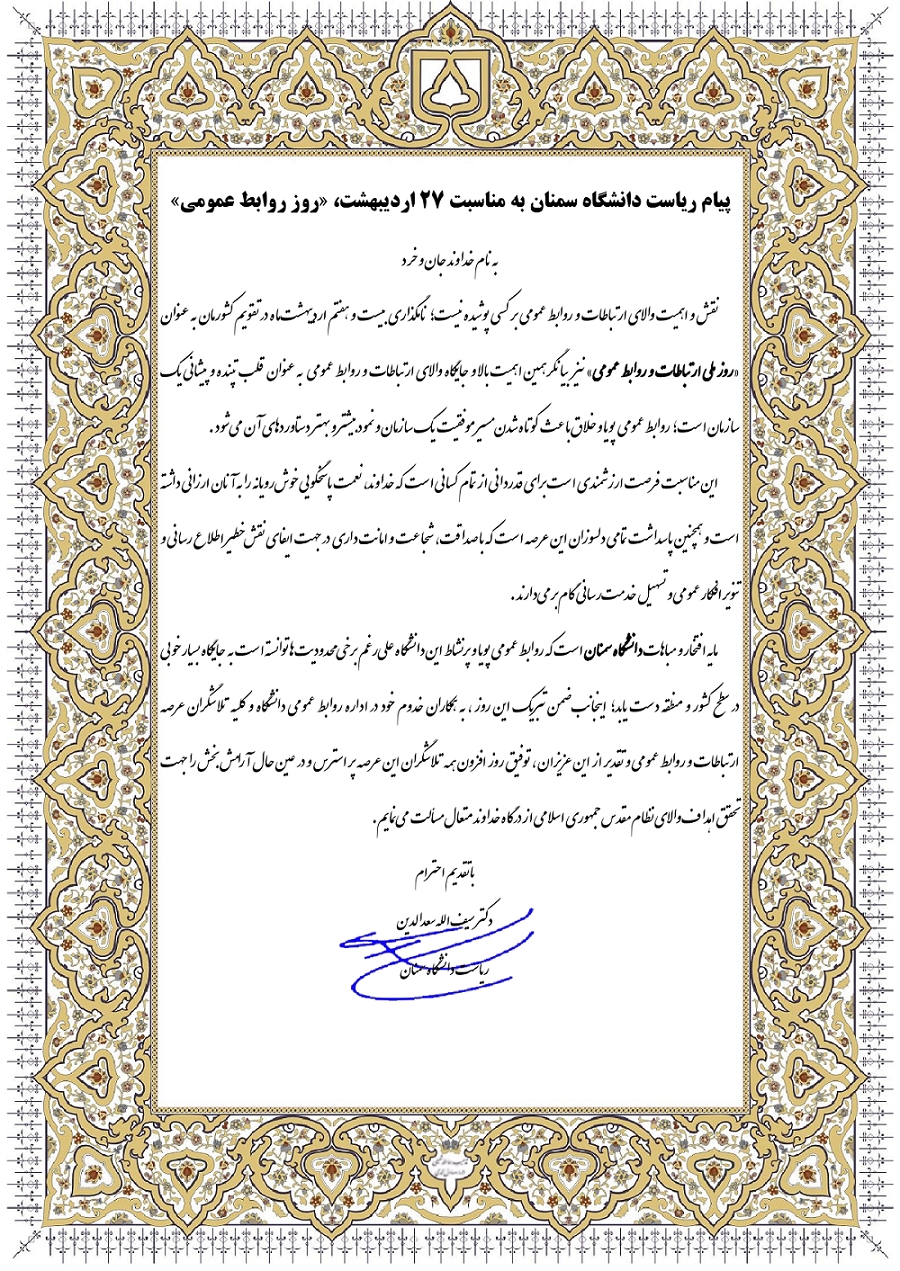 پیام ریاست دانشگاه سمنان به مناسبت ۲۷ اردیبهشت، «روز روابط عمومی»
به نام خداوند جان و خرد
نقش و اهمیت والای ارتباطات و روابط عمومی بر کسی پوشیده نیست؛ نامگذاری بیست و هفتم اردیبهشت‌ماه در تقویم کشورمان به عنوان
«روز ملی ارتباطات و روابط عمومی» نیز بیانگر همین اهمیت بالا و جایگاه والای ارتباطات و روابط عمومی به عنوان قلب تپنده و پیشانی یک
سازمان است؛ روابط عمومی پویا و خلاق باعث کوتاه شدن مسیر موفقیت یک سازمان و نمود بیشتر و بهتر دستاوردهای آن می‌شود .
این مناسبت فرصت ارزشمندی است برای قدردانی از تمام کسانی است که خداوند، نعمت پاسخگویی خوش رویانه را به آنان ارزانی داشته
است و همچنین پاسداشت تمامی دلسوزان این عرصه است که با صداقت، شجاعت و امانت داری در جهت ایفای نقش خطیر اطلاع رسانی و
تنویر افکار عمومی و تسهیل خدمت رسانی گام برمی‌دارند .
مایه افتخار و مباهات دانشگاه سمنان است که روابط عمومی پویا و پرنشاط این دانشگاه علی رغم برخی محدودیت ها توانسته است به جایگاه بسیار خوبی
در سطح کشور و منطقه دست یابد؛ اینجانب ضمن تبریک این روز ، به همکاران خدوم خود در اداره روابط عمومی دانشگاه و کلیه تلاشگران عرصه
ارتباطات و روابط عمومی و تقدیر از این عزیزان ، توفیق روز افزون همه تلاشگران این عرصه پر استرس و در عین حال آرامش بخش را جهت
تحقق اهداف والای نظام مقدس جمهوری اسلامی از درگاه خداوند متعال مسألت می‌نمایم.
با تقدیم احترام
دکتر سیف الله سعدالدین
ریاست دانشگاه سمنان